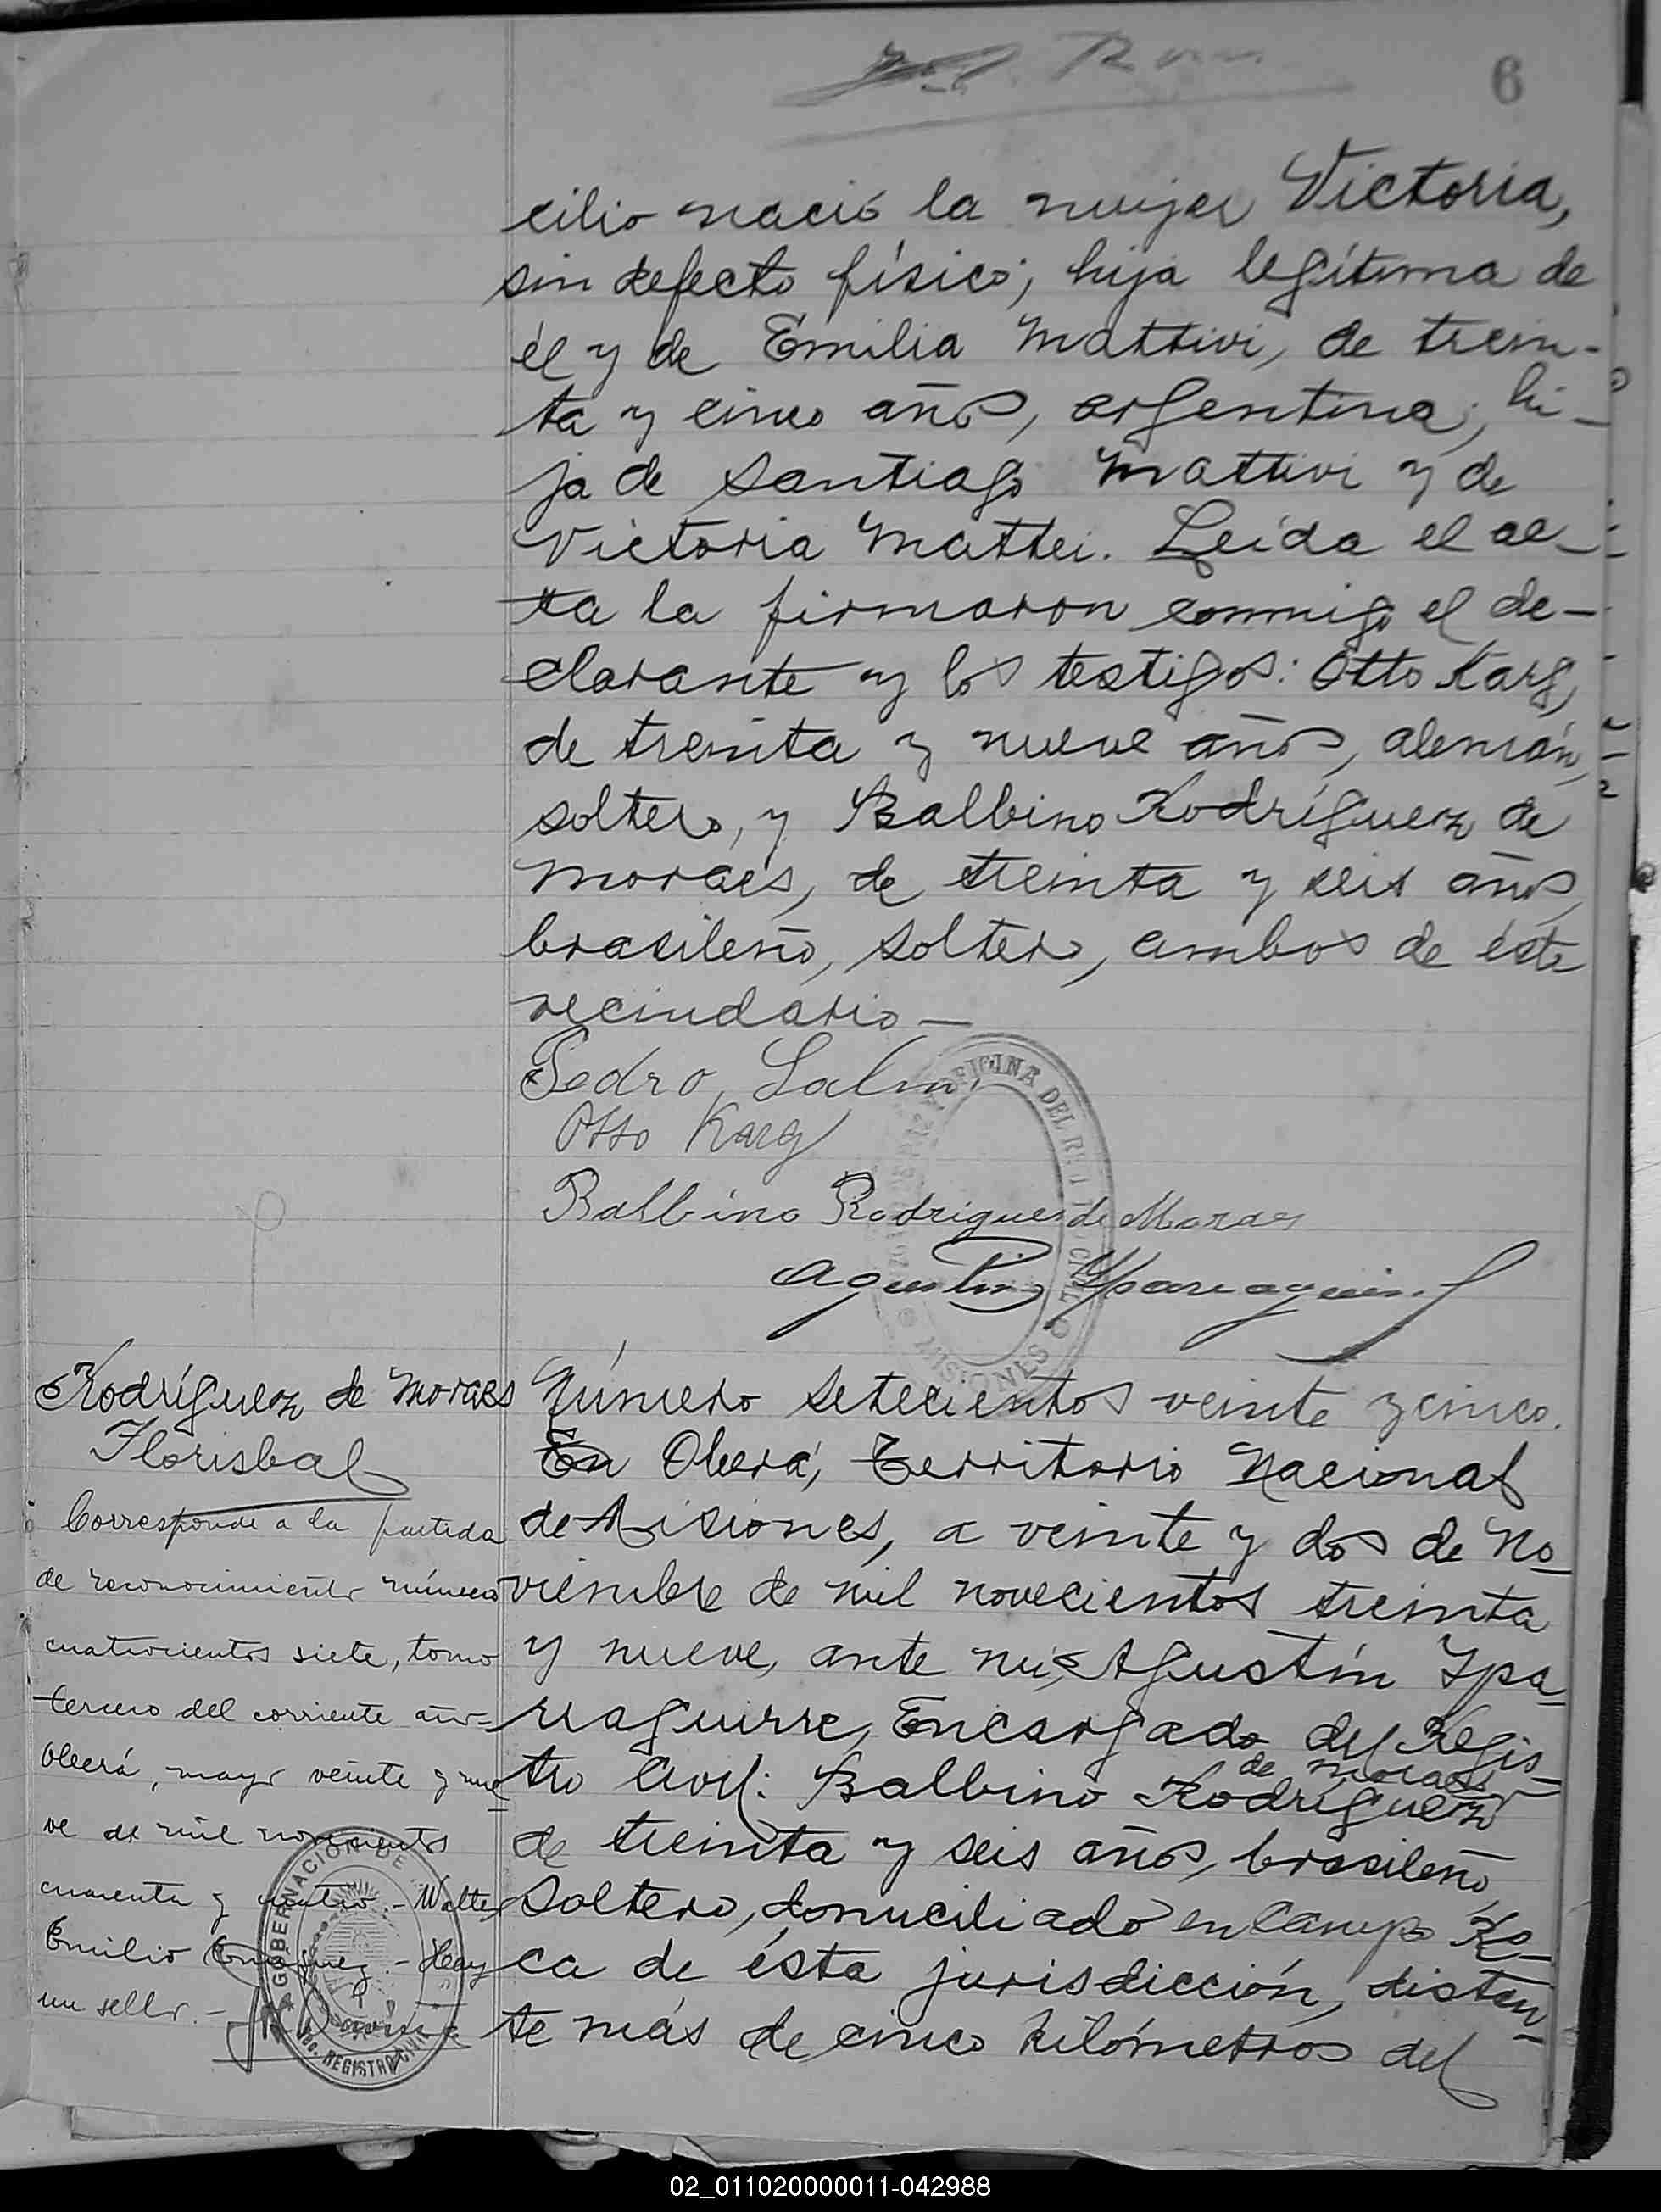 6
cilio nació la mujer Victoria,
sin defecto físico; hija legítima de
él y de Emilia Mattivi, de trein-
ta y cinco años, argentina; hi-
ja de Santiago Mattivi y de
Victoria Mattei. Leída el ac-
ta la firmaron conmigo el de-
clarante y los testigos: Otto Karg,
de treinta y nueve años, alemán,
soltero, y Balbino Rodríguez de
Moraes, de treinta y seis años,
brasileño, soltero, ambos de éste
vecindario—
Pedro
Otto Karg
Balbino Rodrigues de Moraes
Agustin Yparraguirre
OFICINA DEL REG CIVIL
MISIONES
Rodríguez de Moraes
Florisbal
Corresponde a la partida
de reconocimiento número
cuatrocientos siete, tomo
tercero del corriente año-
Oberá, mayo veinte y nue-
ve de mil novecientos
cuarenta y cuatro.- Walter
Emilio .- Hay
un sello.-
GOBERNACION DE
REGISTRO CIVIL
Número setecientos veinte y cinco.
En Oberá, Territorio Nacional
de Misiones, a veinte y dos de No-
viembre de mil novecientos treinta
y nueve, ante mí, Agustín Ypa-
rraguirre, Encargado del Regis-
tro Civil: Balbino Rodríguez de Moraes
de treinta y seis años, brasileño,
soltero, domiciliado en Campo Ro-
ca de ésta jurisdicción, distan-
te más de cinco kilómetros del
02_011020000011-042988